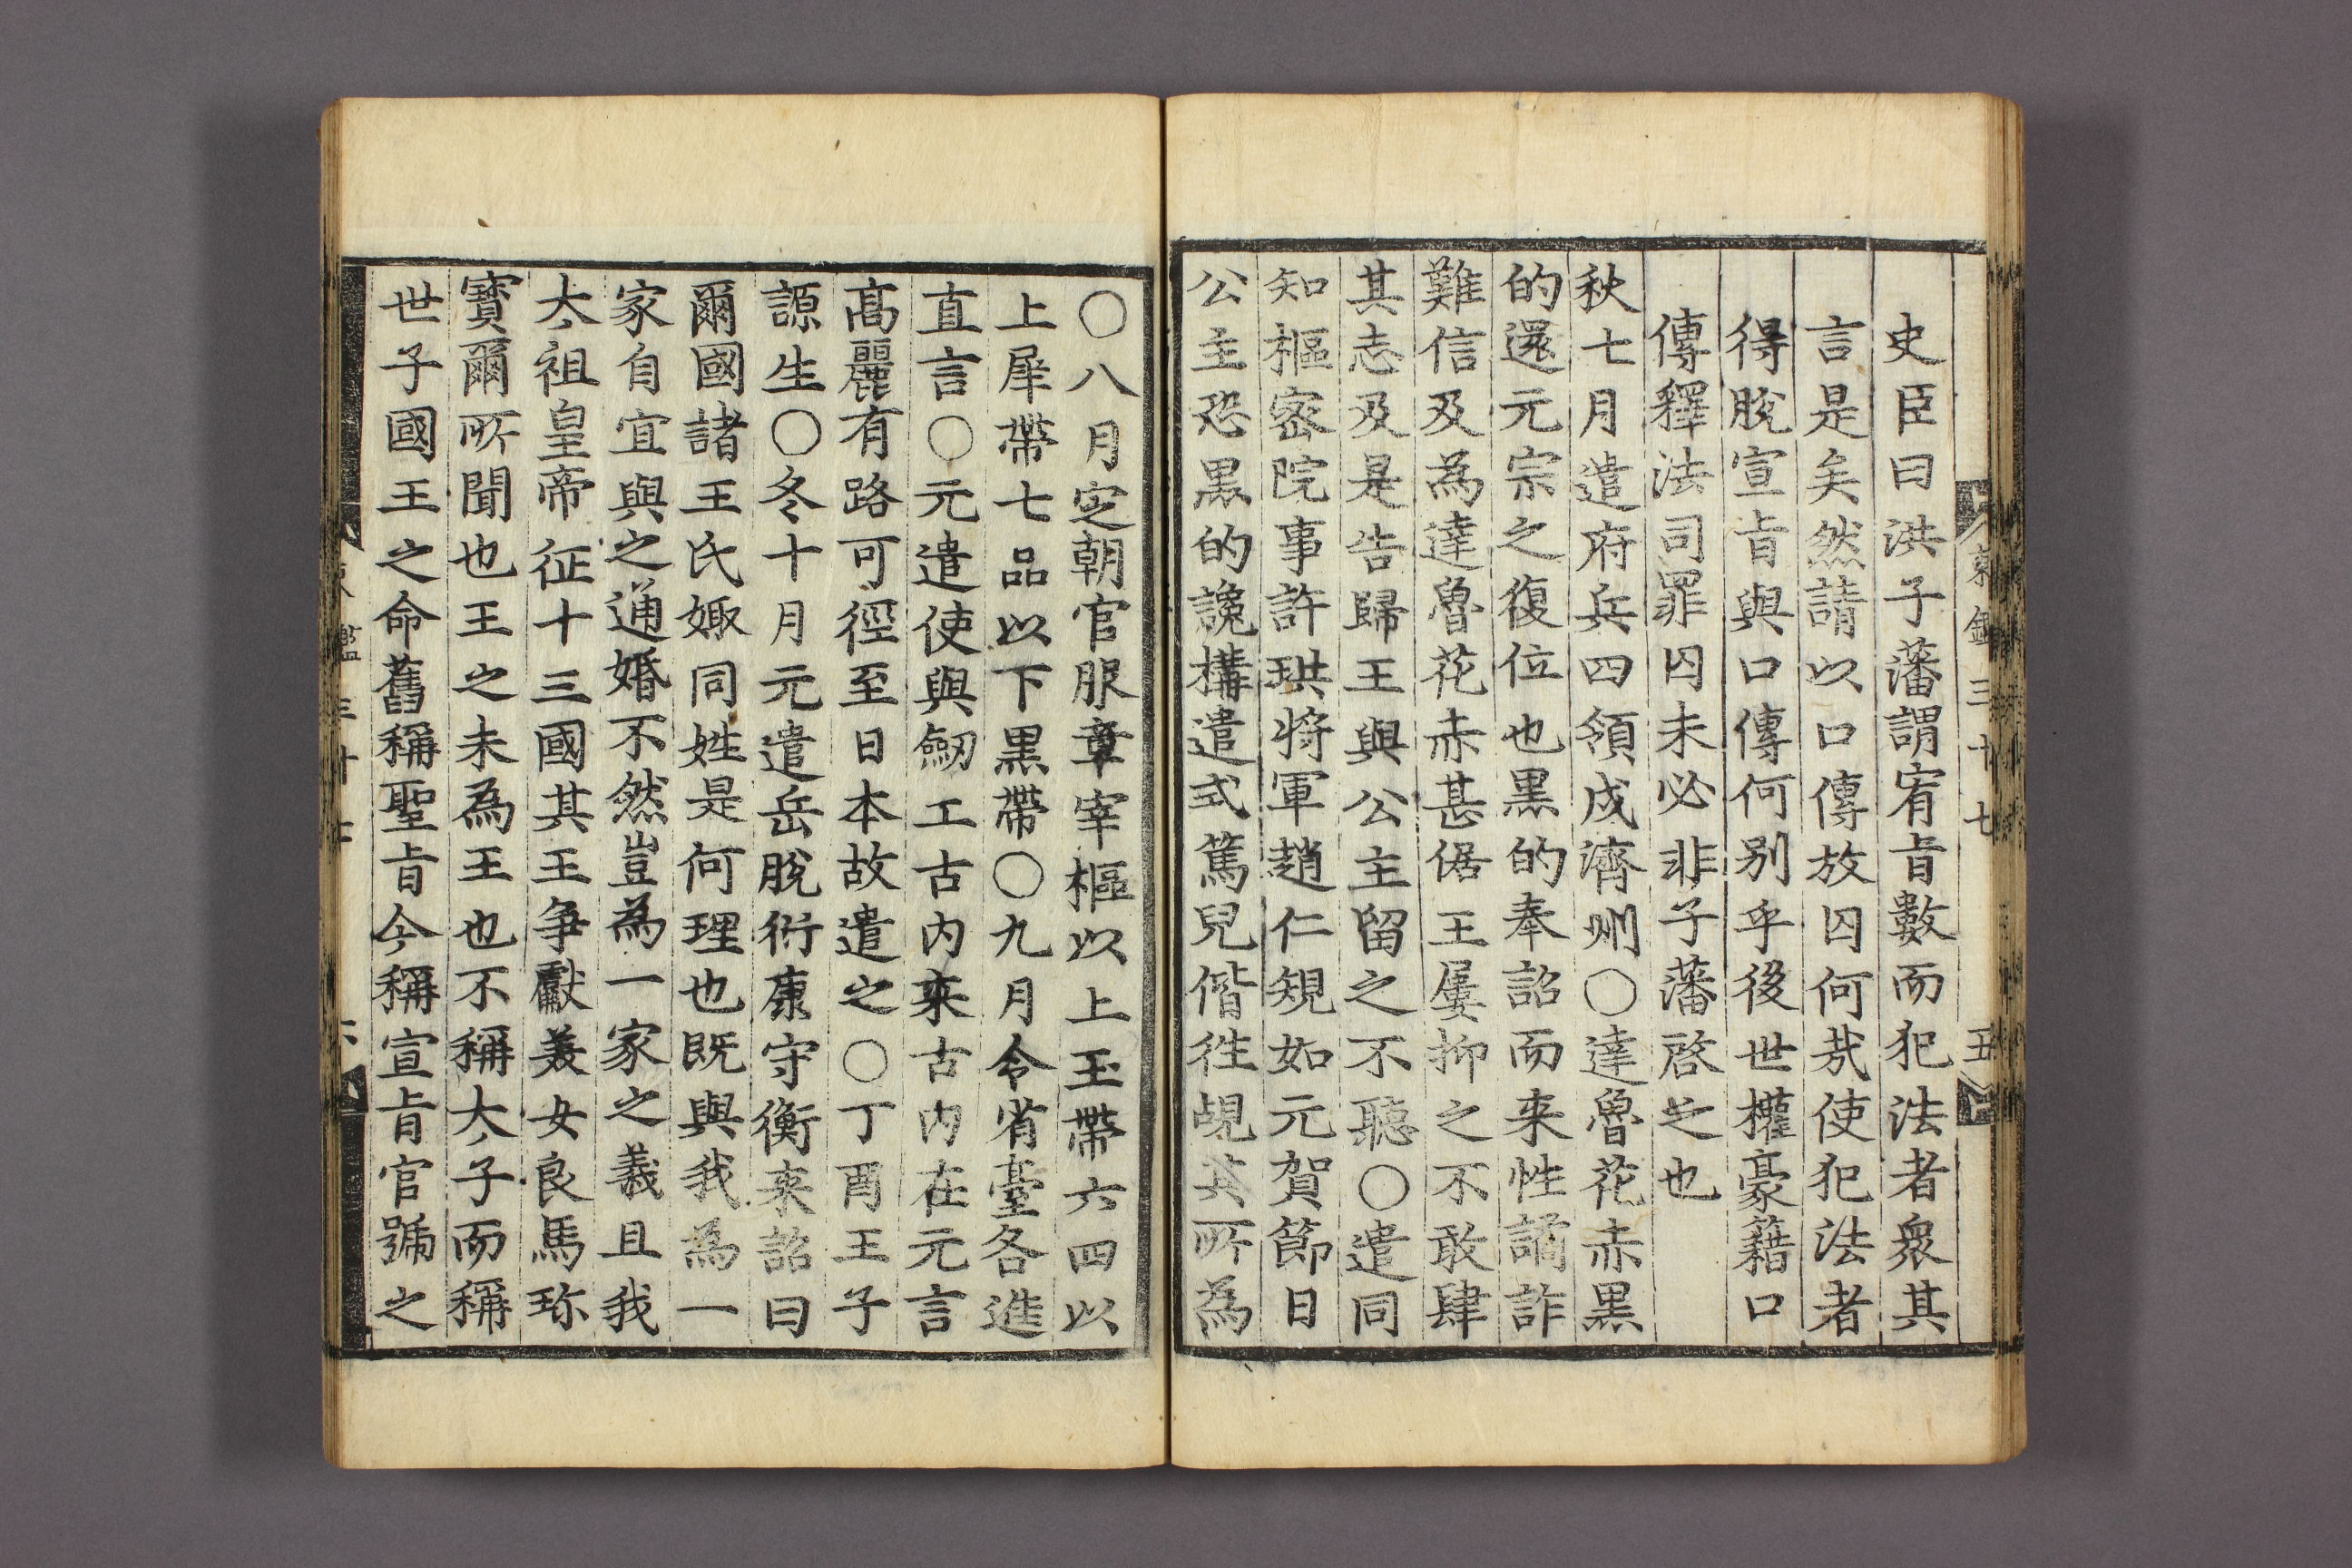 史臣曰洪子藩謂宥旨數而犯法者衆其
言是矣然請以口傳放囚何㢤使犯法者
得脫宣旨與口傳何别乎後世權豪籍口
傳釋法司罪囚未必非子藩啓之也
秋七月遣府兵四領戍濟州○達魯花赤黑
的還元宗之復位也黑的奉詔而来性譎詐
難信及為達魯花赤甚倨王屢抑之不敢肆
其志及是告歸王與公主留之不聽○遣同
知樞密院事許珙將軍趙仁規如元賀節日
公主恐黑的讒構遣式篤兒偕徃覘其所為
東鑑三十七
五
○八月定朝官服章宰樞以上玉帶六四以
上犀帶七品以下黑帶○九月令省臺各進
直言○元遣使與劒工古内来古内在元言
高麗有路可徑至日本故遣之○丁酉王子
謜生○冬十月元遣岳脫衍康守衡来詔曰
爾國諸王氏娵同姓是何理也既與我為一
家自宜與之通婚不然豈為一家之義且我
太祖皇帝征十三國其王争獻美女良馬珎
寶爾所聞也王之未為王也不稱太子而稱
世子國王之命舊稱聖旨今稱宣旨官號之